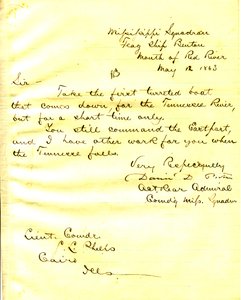 Mississippi Squadron
Flag Ship Benton
Mouth of Red River
May 1863
Sir
Take the first turreted boat
that comes down for the Tennessee River,
but for a short time only.
You still command the Eastport,
and I have other work for you when
the Tennessee falls.
Very Respectfully
David D.
Act Rear Admiral
Comdg Miss. Squadn
Lieut. Comdr.
Phelps
Cairo
Ills